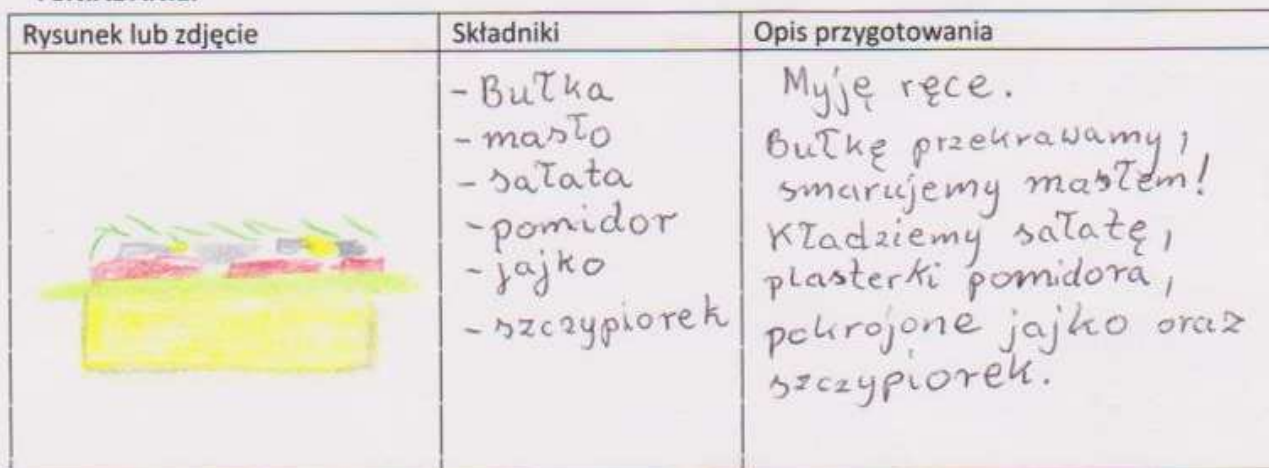 Rysunek lub zdjęcie
Składniki
Opis przygotowania
- Bułka
- masło
- sałata
- pomidor
- jajko
- szczypiorek
Myję ręce.
Bułkę przekrawamy,
smarujemy masłem!
Kładziemy sałatę,
plasterki pomidora,
pokrojone jajko oraz
szczypiorek.